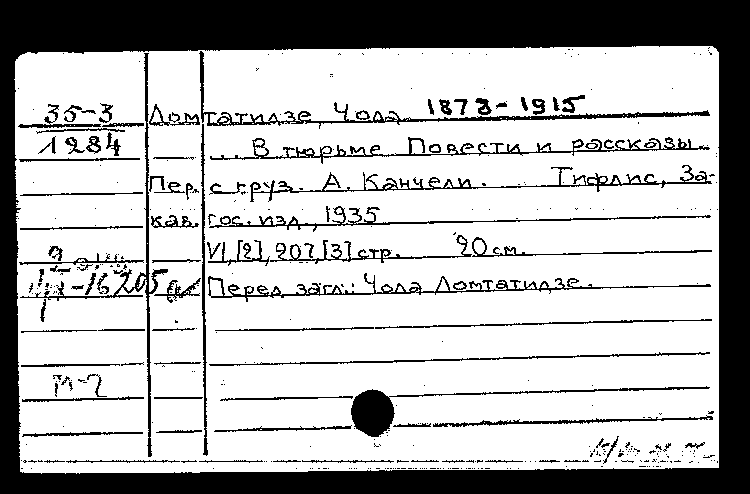 35-3 Ломтатидзе, Чола 1878-1915
1284 ... В тюрьме Повести и рассказы.
Пер. с груз. А. Канчели. Тифлис, За-
кав. гос. изд., 1935
VI, [2], 207, [3] стр. 20 см.
-16205 Перед загл.: Чола Ломтатидзе.
М-2